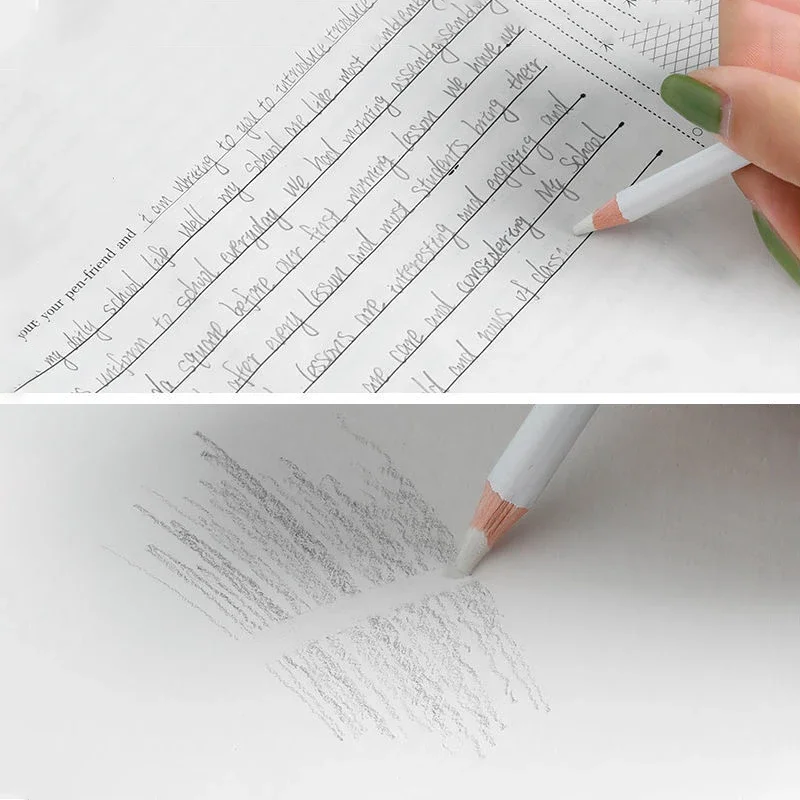 your your pen-friend and I am writing to you to introduce introduce
my daily school life Well, my school are like most
uniform to school everyday We had morning assembly
square before our first morning lesson We have we
after every lesson and most students bring their
lessons are interesting and engaging and
are care and considering My School
and mus of class